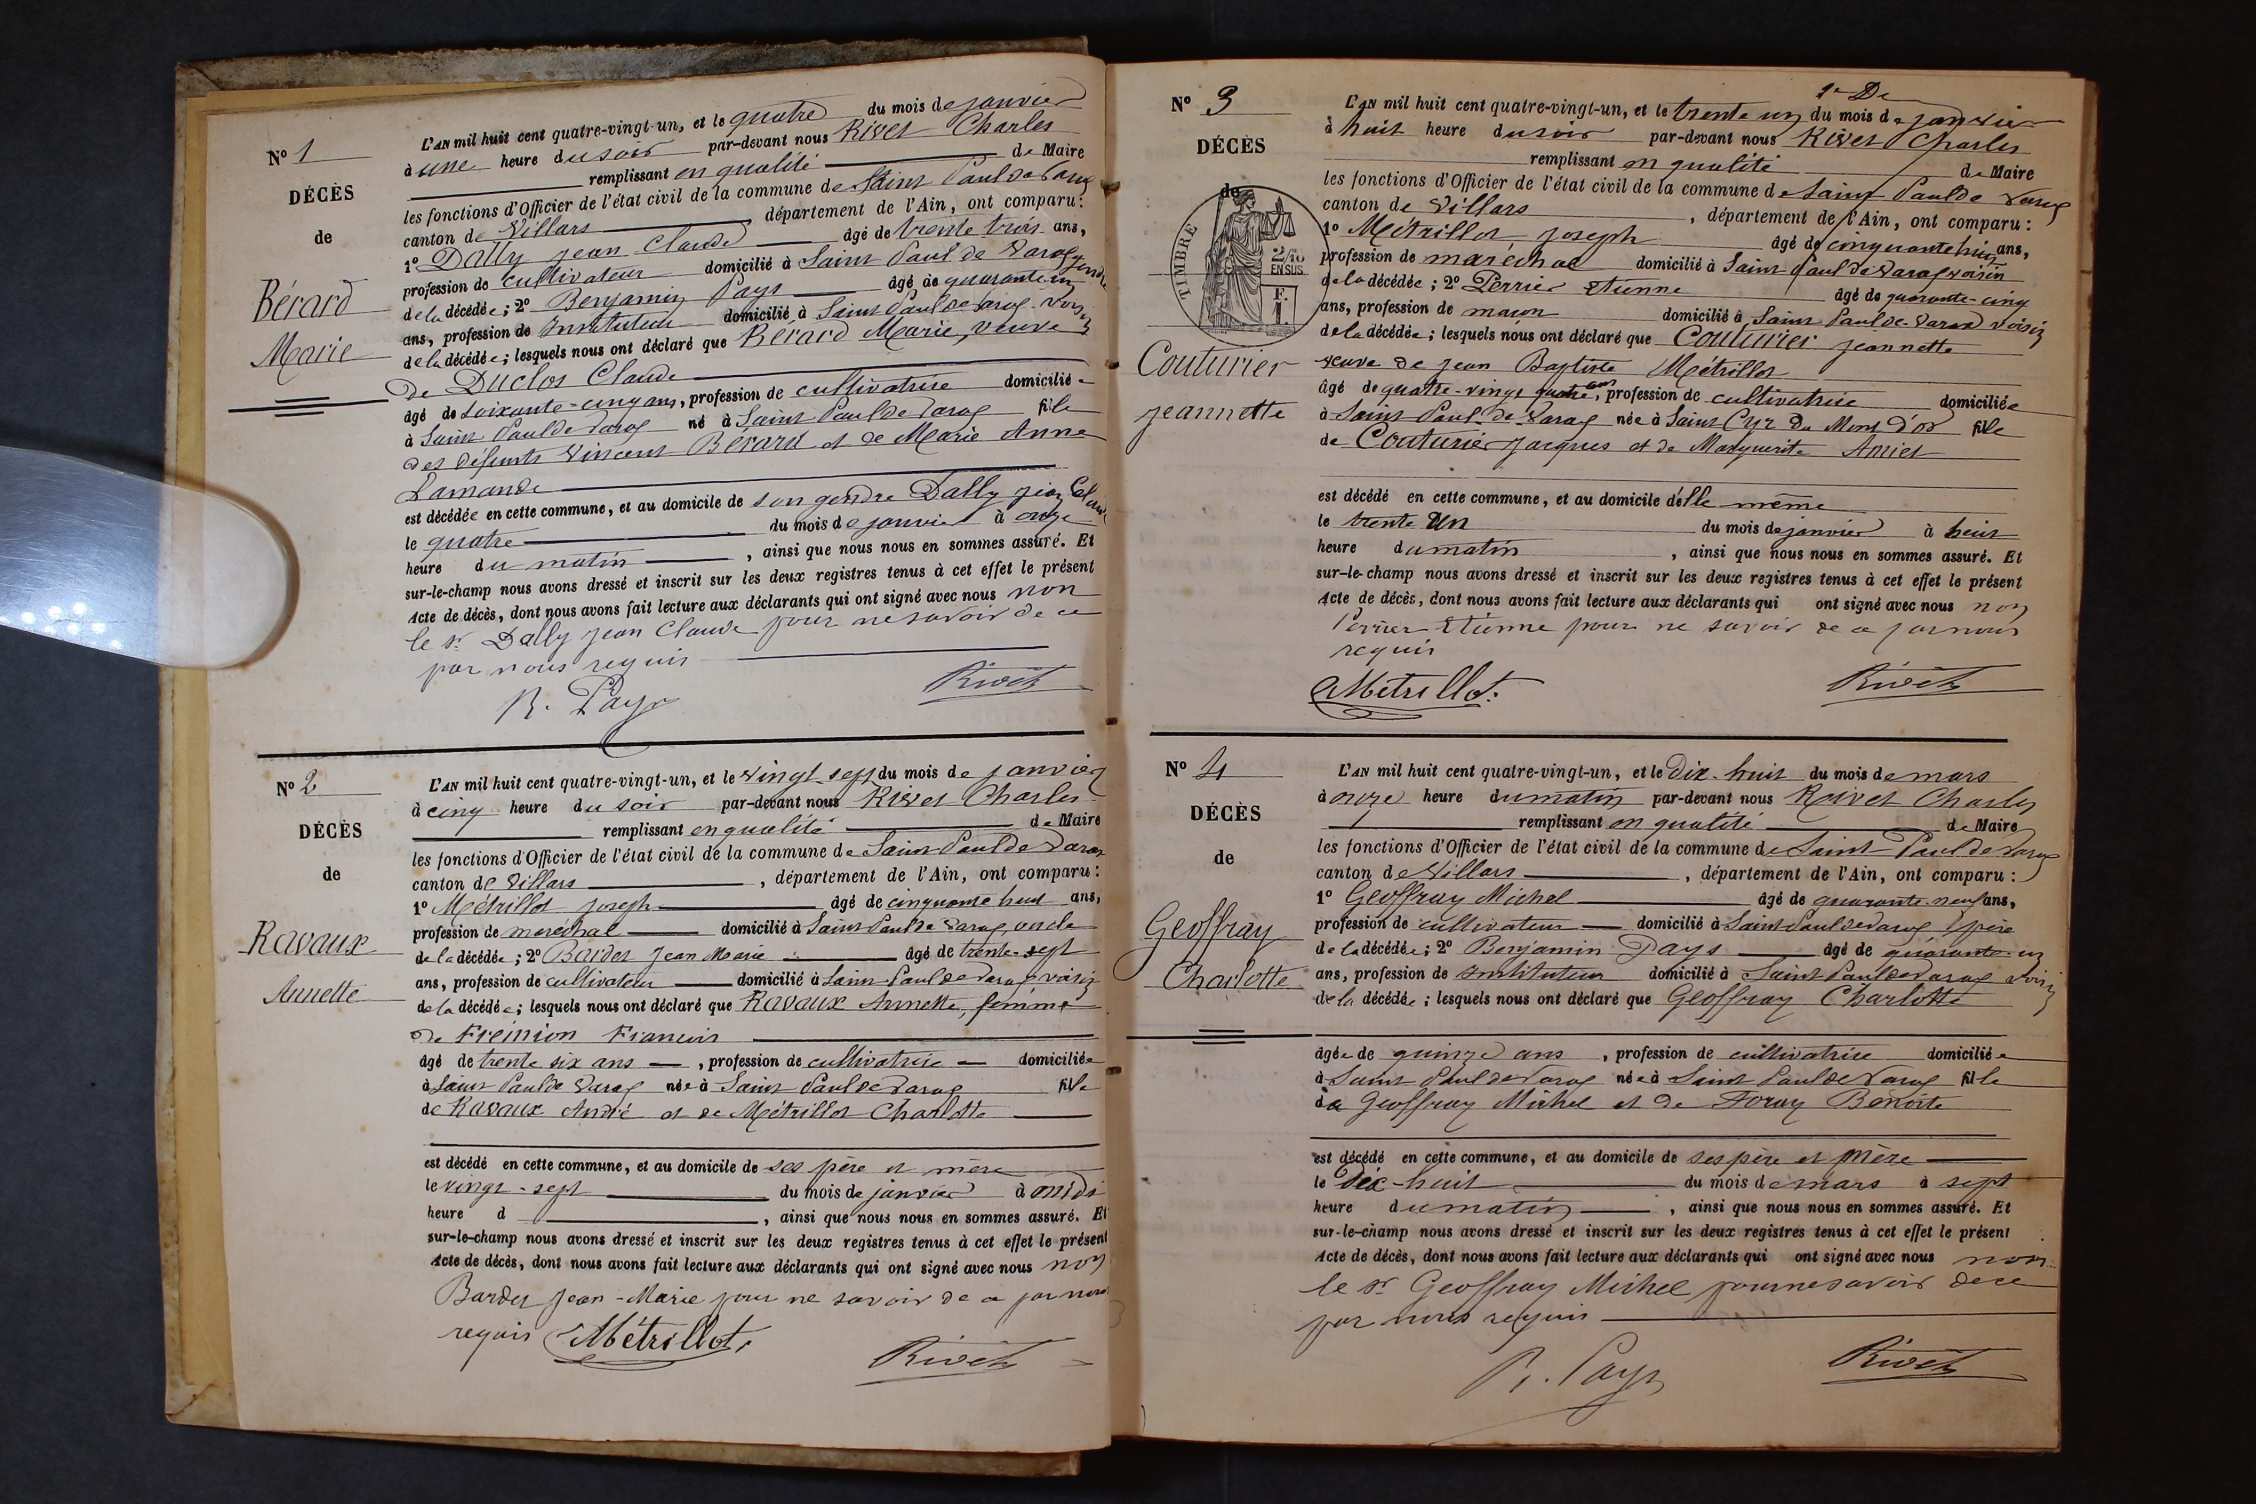 N° 1
DÉCÈS
de
Bérard
Marie
L'AN mil huit cent quatre-vingt-un, et le quatre du mois de janvier
à une heure du soir par-devant nous Rivet Charles
remplissant en qualité de Maire
les fonctions d'Officier de l'état civil de la commune de Saint Paul de Varax
canton de Villars, département de l'Ain, ont comparu:
1° Dally jean Claude âgé de trente trois ans,
profession de cultivateur domicilié à Saint Paul de Varax gendre
de la décédée; 2° Benjamin Pays âgé de quarante un
ans, profession de Instituteur domicilié à Saint Paul de Varax voisin
de la décédée; lesquels nous ont déclaré que Bérard Marie, veuve
de Duclos Claude
âgé de soixante-cinq ans, profession de cultivatrice domicilié e
à Saint Paul de Varax né à Saint Paul de Varax fille
des défunts Vincent Bérard et de Marie Anne
Lamande
est décédée en cette commune, et au domicile de son gendre Dally jean Claude
le quatre du mois de janvier à onze
heure du matin, ainsi que nous nous en sommes assuré. Et
sur-le-champ nous avons dressé et inscrit sur les deux registres tenus à cet effet le présent
Acte de décès, dont nous avons fait lecture aux déclarants qui ont signé avec nous non
le sr Dally jean Claude pour ne savoir de ce
par nous requis
B. Pays Rivet
N° 2
DÉCÈS
de
Ravaux
Annette
L'AN mil huit cent quatre-vingt-un, et le vingt-sept du mois de janvier
à cinq heure du soir par-devant nous Rivet Charles
remplissant en qualité de Maire
les fonctions d'Officier de l'état civil de la commune de Saint Paul de Varax
canton de Villars, département de l'Ain, ont comparu:
1° Métrillot joseph âgé de cinquante huit ans,
profession de maréchal domicilié à Saint Paul de Varax oncle
de la décédée; 2° Bardet Jean Marie âgé de trente-sept
ans, profession de cultivateur domicilié à Saint-Paul de Varax voisin
de la décédée; lesquels nous ont déclaré que Ravaux Annette, femme
de François
âgé de trente six ans, profession de cultivatrice domiciliée
à Saint Paul de Varax née à Saint Paul de Varax fille
de Ravaux André et de Métrillot Charlotte
est décédé en cette commune, et au domicile de ses père et mère
le vingt-sept du mois de janvier à midi
heure d, ainsi que nous nous en sommes assuré. Et
sur-le-champ nous avons dressé et inscrit sur les deux registres tenus à cet effet le présent
Acte de décès, dont nous avons fait lecture aux déclarants qui ont signé avec nous non
Bardet Jean-Marie pour ne savoir de ce par nous
requis Métrillot, Rivet
1er De
N° 3
DÉCÈS
de
TIMBRE
2/10
EN SUS
F.
1
Couturier
jeannette
L'AN mil huit cent quatre-vingt-un, et le trente un du mois de janvier
à huit heure du soir par-devant nous Rivet Charles
remplissant en qualité de Maire
les fonctions d'Officier de l'état civil de la commune de Saint Paul de Varax
canton de Villars, département de l'Ain, ont comparu:
1° Métrillot joseph âgé de cinquante huit ans,
profession de maréchal domicilié à Saint Paul de Varax voisin
de la décédée; 2° Perrier Etienne âgé de quarante-cinq
ans, profession de maçon domicilié à Saint Paul de Varax voisin
de la décédée; lesquels nous ont déclaré que Couturier jeannette
veuve de jean Baptiste Métrillot
âgé de quatre-vingt quatre ans, profession de cultivatrice domiciliée
à Saint Paul de Varax née à Saint Cyr du Mont d'or fille
de Couturier jacques et de Marguerite
est décédé en cette commune, et au domicile d'elle même
le trente un du mois de janvier à huit
heure du matin, ainsi que nous nous en sommes assuré. Et
sur-le-champ nous avons dressé et inscrit sur les deux registres tenus à cet effet le présent
Acte de décès, dont nous avons fait lecture aux déclarants qui ont signé avec nous non
Perrier Etienne pour ne savoir de ce par nous
requis
Métrillot. Rivet
N° 4
DÉCÈS
de
Geoffray
Charlotte
L'AN mil huit cent quatre-vingt-un, et le dix-huit du mois de mars
à onze heure du matin par-devant nous Rivet Charles
remplissant en qualité de Maire
les fonctions d'Officier de l'état civil de la commune de Saint Paul de Varax
canton de Villars, département de l'Ain, ont comparu:
1° Geoffray Michel âgé de quarante-neuf ans,
profession de cultivateur domicilié à Saint Paul de Varax père
de la décédée; 2° Benjamin Pays âgé de quarante-un
ans, profession de Instituteur domicilié à Saint Paul de Varax voisin
de la décédée; lesquels nous ont déclaré que Geoffray Charlotte
âgée de quinze ans, profession de cultivatrice domicilié e
à Saint Paul de Varax née à Saint Paul de Varax fille
de Geoffray Michel et de Foray Benoite
est décédé en cette commune, et au domicile de ses père et mère
le dix-huit du mois de mars à sept
heure du matin, ainsi que nous nous en sommes assuré. Et
sur-le-champ nous avons dressé et inscrit sur les deux registres tenus à cet effet le présent
Acte de décès, dont nous avons fait lecture aux déclarants qui ont signé avec nous non
le sr Geoffray Michel pour ne savoir de ce
par nous requis
B. Pays Rivet